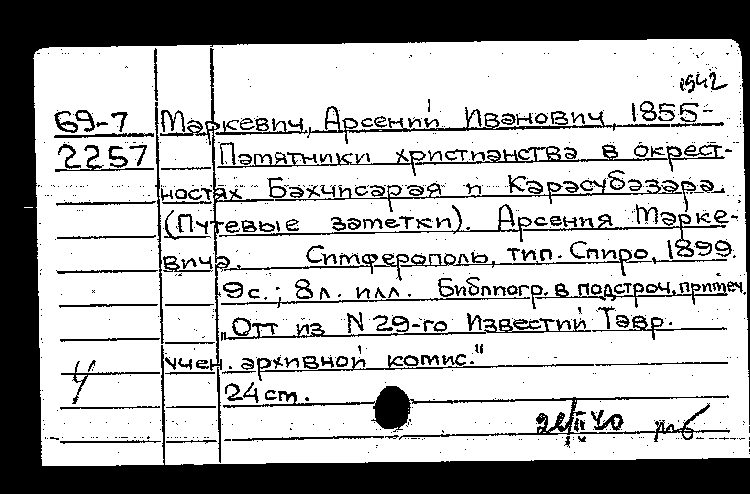 1942
69-7 Маркевич, Арсений Иванович, 1855-
2257 Памятники христианства в окрест-
ностях Бахчисарая и Карасубазара.
(Путевые заметки). Арсения Марке-
вича. Симферополь, тип. Спиро, 1899.
9с.; 8л. илл. Библиогр. в подстроч. примеч.
„Отт из N 29-го Известий Тавр.
учен. архивной комис."
24 ст.